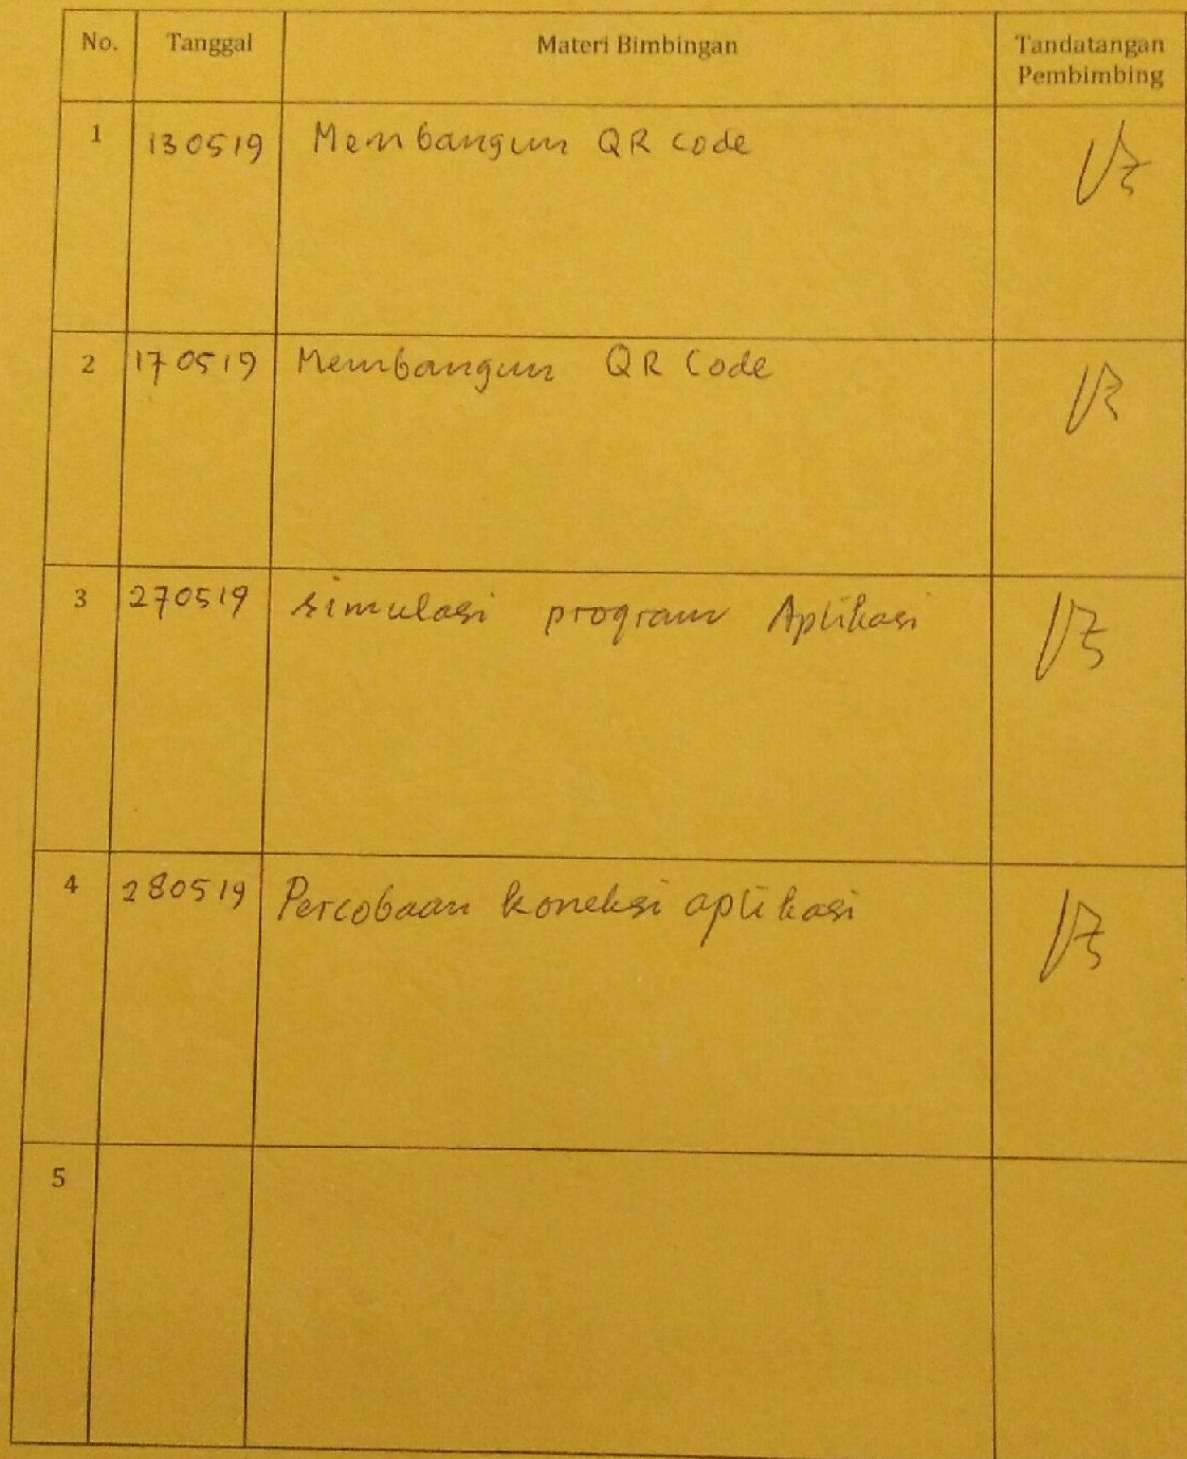 No. Tanggal Materi Bimbingan Tandatangan
Pembimbing
1 130519 Membangun QR code
2 170519 Membangun QR Code
3 270519 simulasi program Aplikasi
4 280519 Percobaan koneksi aplikasi
5